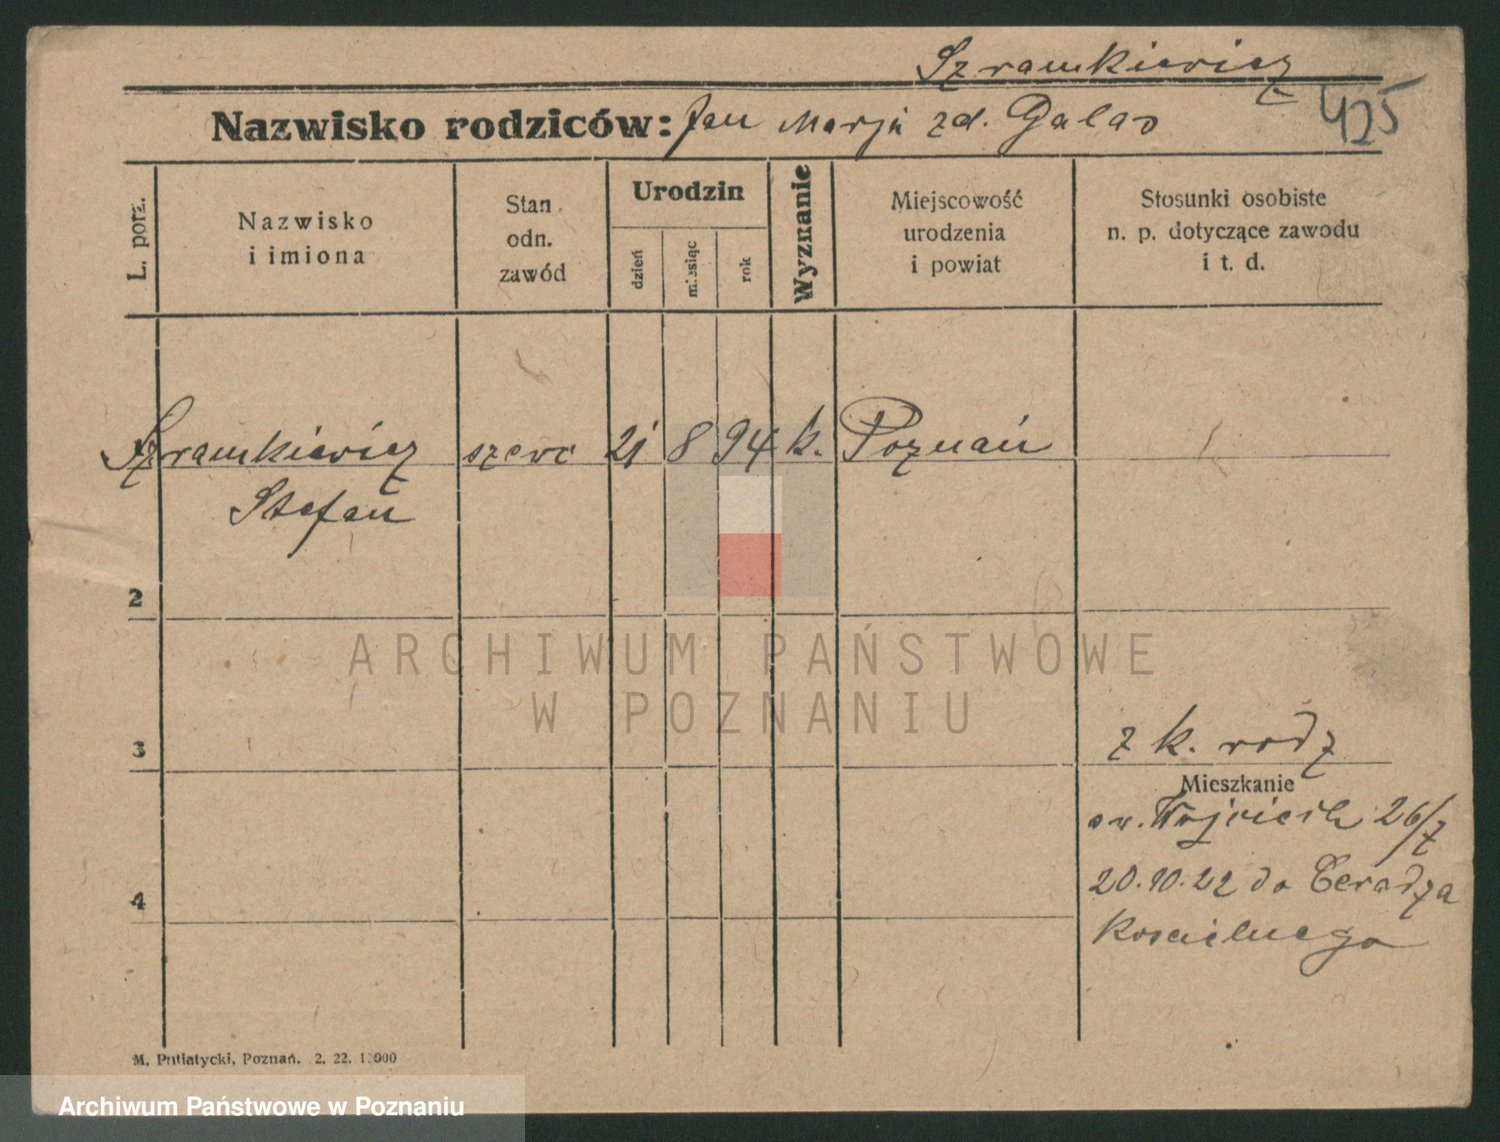 Szramkiewicz
Nazwisko rodziców: Jan Marja zd. Galas
425
L. porz.
Nazwisko
i imiona
Stan
odn.
zawód
Urodzin
dzień
miesiąc
rok
Wyznanie
Miejscowość
urodzenia
i powiat
Stosunki osobiste
n. p. dotyczące zawodu
i t. d.
Szramkiewicz szewc 21 8 94 k. Poznań
Stefan
2
ARCHIWUM PAŃSTWOWE
W POZNANIU
z k. rodz
3
Mieszkanie
św. Wojciech 26/7
20.10.22 do Ceradza
4
Koscielnego
M. Putiatycki, Poznań. 2. 22. 10000
Archiwum Państwowe w Poznaniu